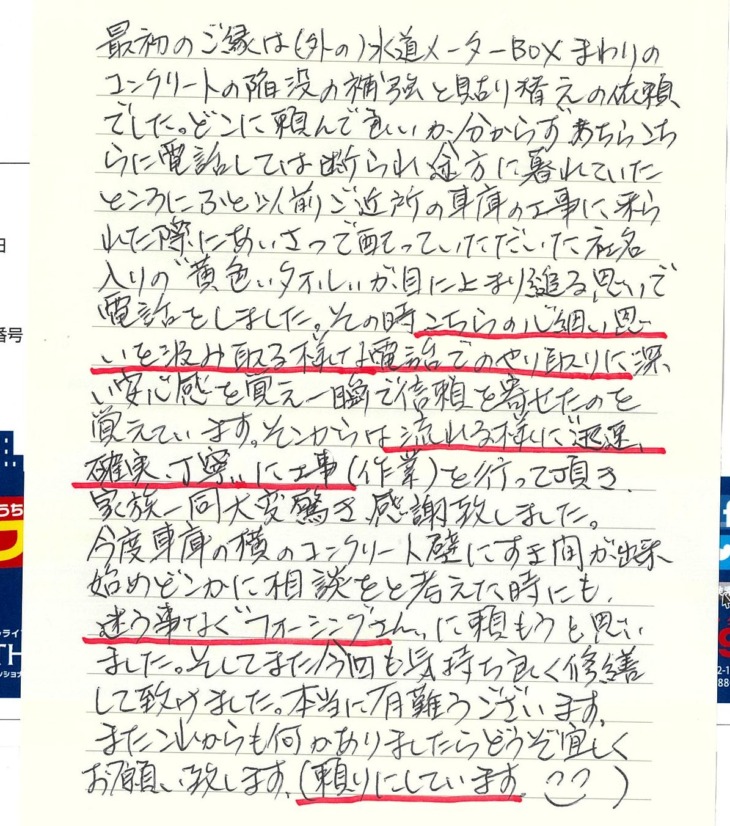 最初のご縁は(外の)水道メーターBOXまわりの
コンクリートの陥没の補強と貼り替えの依頼
でした。どこに頼んで良いか、分からず あちらこち
らに電話しては断られ 途方に暮れていた
ところにふと以前ご近所の車庫の工事に来ら
れた際にあいさつで配っていただいた社名
入りの"黄色いタオル"が目に止まり縋る思いで
電話をしました。その時こちらの心細い思
いを汲み取る様な電話でのやり取りに深
い安心感を覚え一瞬で信頼を寄せたのを
覚えています。そこからは流れる様に"迅速、
確実、丁寧"に工事(作業)を行って頂き、
家族一同大変驚き感謝致しました。
今度車庫の横のコンクリート壁にすき間が出来
始めどこかに相談をと考えた時にも、
迷う事なく"フォーシングさん"に頼もうと思い
ました。そしてまた今回も気持ち良く修繕
して致けました。本当に有難うございます。
またこれからも何かありましたらどうぞ宜しく
お願い致します。(頼りにしています。)
日
番号
うち